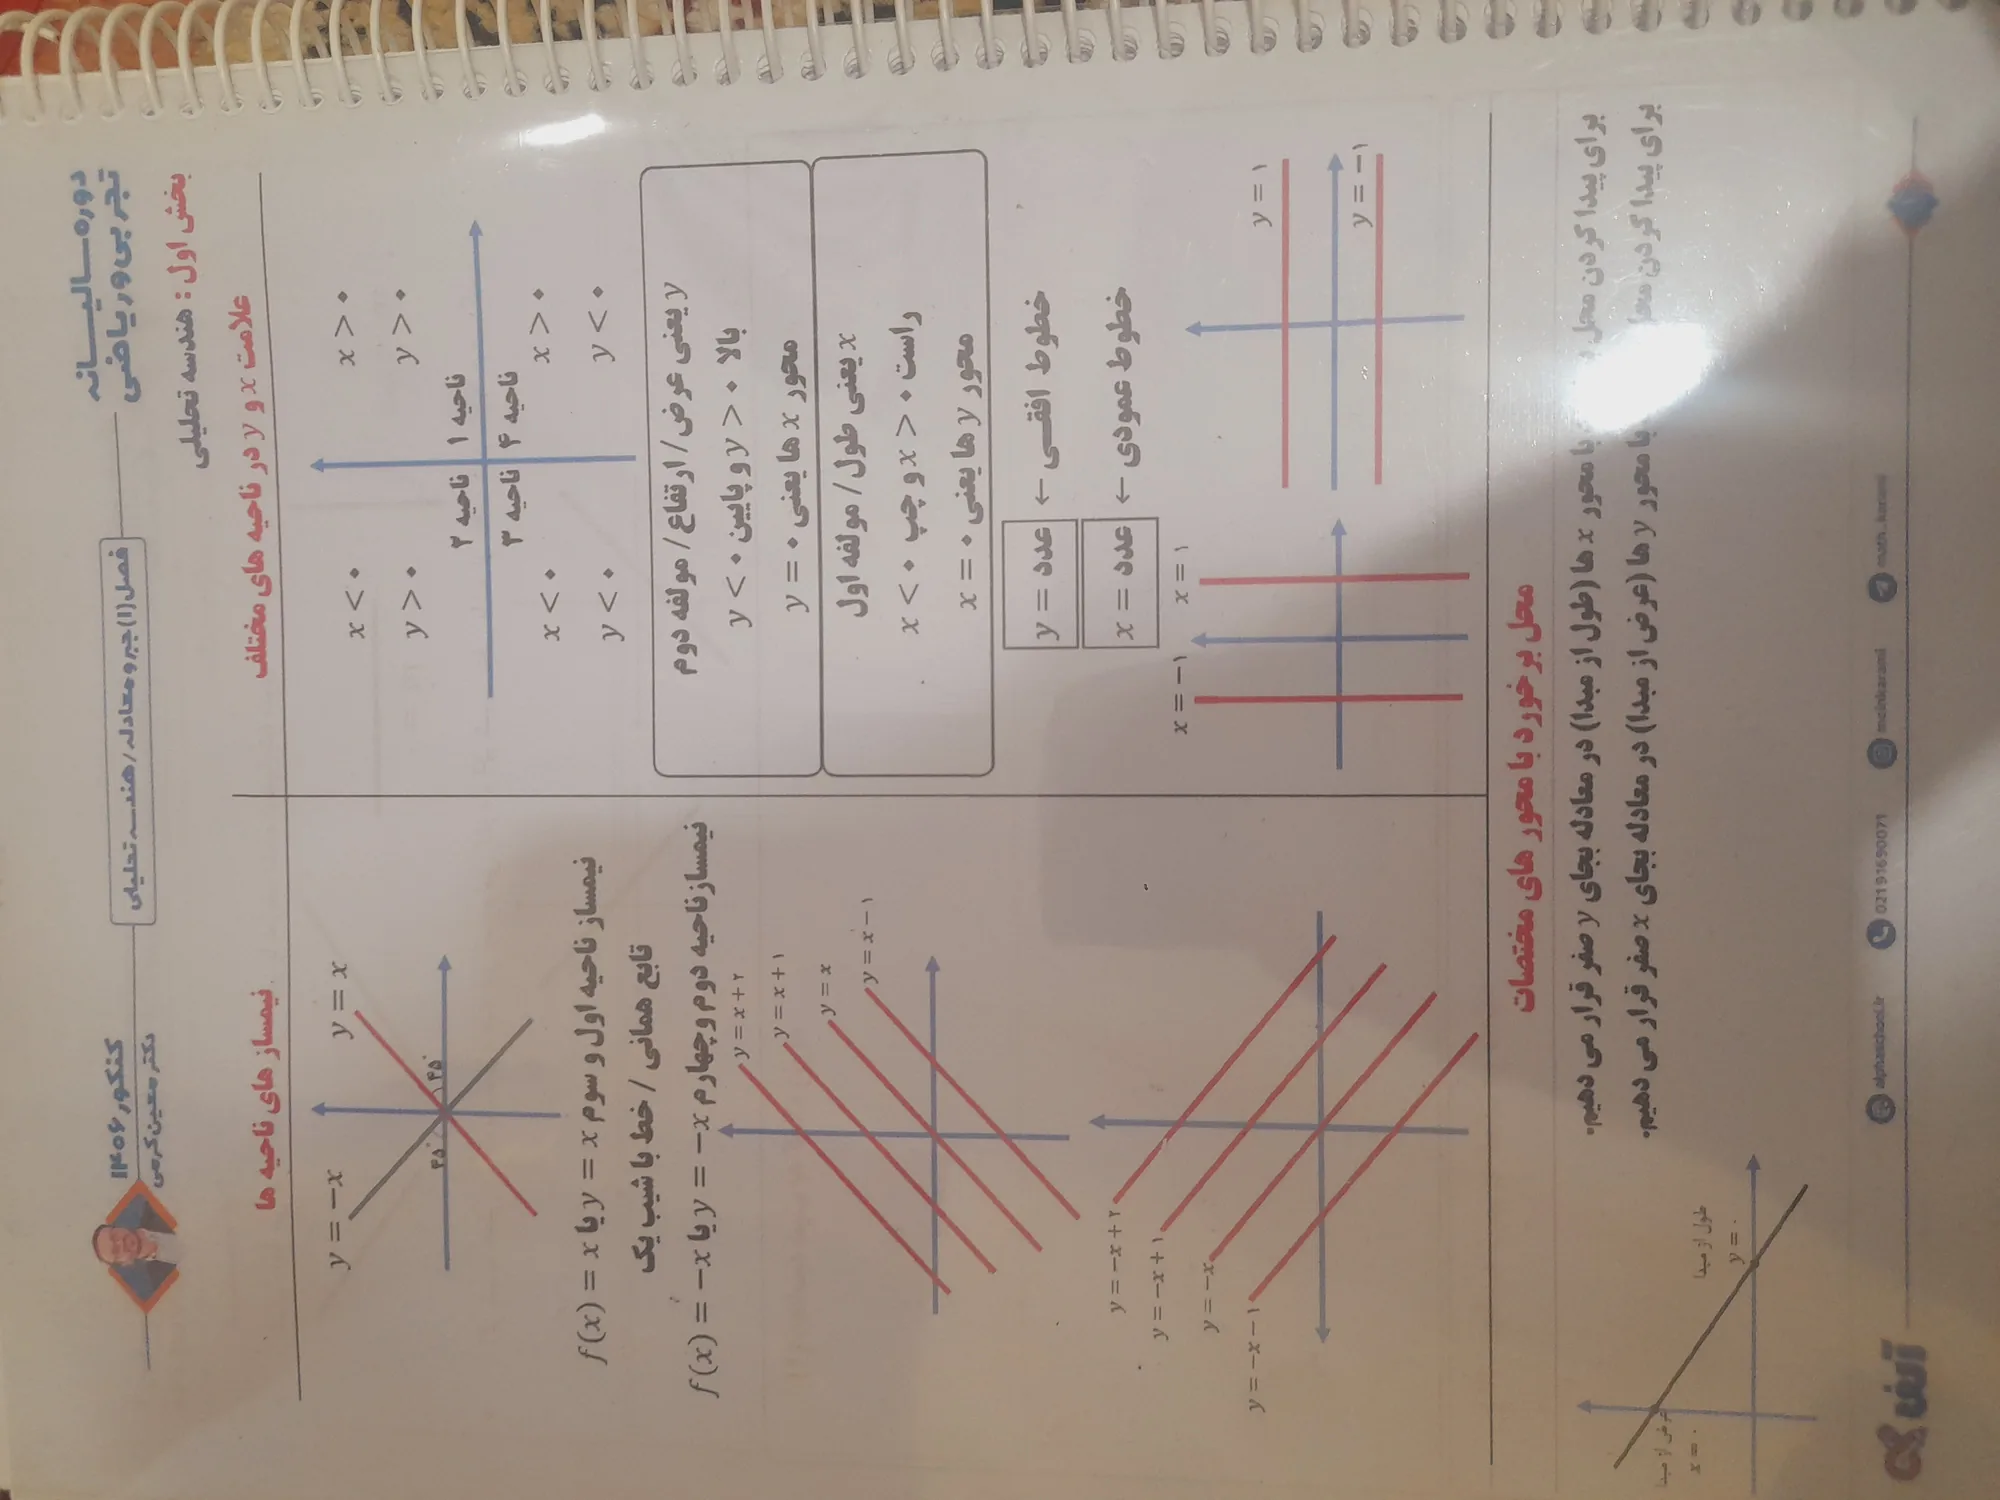 دوره ســالیـــــانه
تجربی و ریاضی
فصل (۱) جبر و معادله / هندسه تحلیلی
کنکور ۱۴۰۶
دکتر معین کرمی
بخش اول : هندسه تحلیلی
علامت x و y در ناحیه های مختلف
x < ۰
y > ۰
x > ۰
y > ۰
ناحیه ۲
ناحیه ۱
ناحیه ۳
ناحیه ۴
x < ۰
y < ۰
x > ۰
y < ۰
y یعنی عرض / ارتفاع / مولفه دوم
بالا y > ۰ و پایین y < ۰
محور x ها یعنی y = ۰
x یعنی طول / مولفه اول
راست x > ۰ و چپ x < ۰
محور y ها یعنی x = ۰
y = عدد ← خطوط افقی
x = عدد ← خطوط عمودی
x = −۱
x = ۱
y = ۱
y = −۱
نیمساز های ناحیه ها
y = −x
y = x
۴۵°
۴۵°
نیمساز ناحیه اول و سوم y = x یا f(x) = x
تابع همانی / خط با شیب یک
نیمساز ناحیه دوم و چهارم y = −x یا f(x) = −x
y = x + ۲
y = x + ۱
y = x
y = x − ۱
y = −x + ۲
y = −x + ۱
y = −x
y = −x − ۱
محل برخورد با محور های مختصات
برای پیدا کردن محل با محور x ها (طول از مبدا) در معادله بجای y صفر قرار می دهیم.
برای پیدا کردن با محور y ها (عرض از مبدا) در معادله بجای x صفر قرار می دهیم.
عرض از مبدا
x = ۰
طول از مبدا
y = ۰
آلفا
alphaschool.ir
02191690071
moinkarami
math.karami